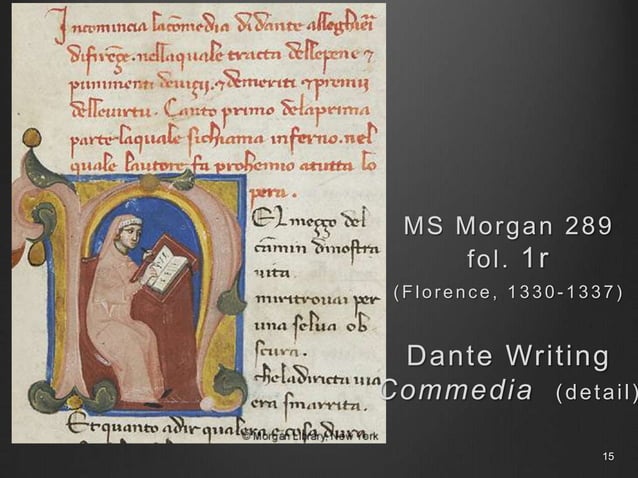 Incomincia lacomedia di dante alleghieri
difirençe. nellaquale tracta dellepene ⁊
punimenti deuiçij. ⁊ demeriti ⁊ premij
delleuirtu. Canto primo delaprima
parte laquale sichiama inferno. nel
quale lautore fa prohemio atutta lo
pera.
EL meçço del
camin dinostra
uita.
miritrouai per
una selua ob
scura.
cheladiricta uia
era smarrita.
Et quanto adir qualera e cosa dura
© Morgan Library, New York
MS Morgan 289
fol. 1r
(Florence, 1330-1337)
Dante Writing
Commedia (detail)
15